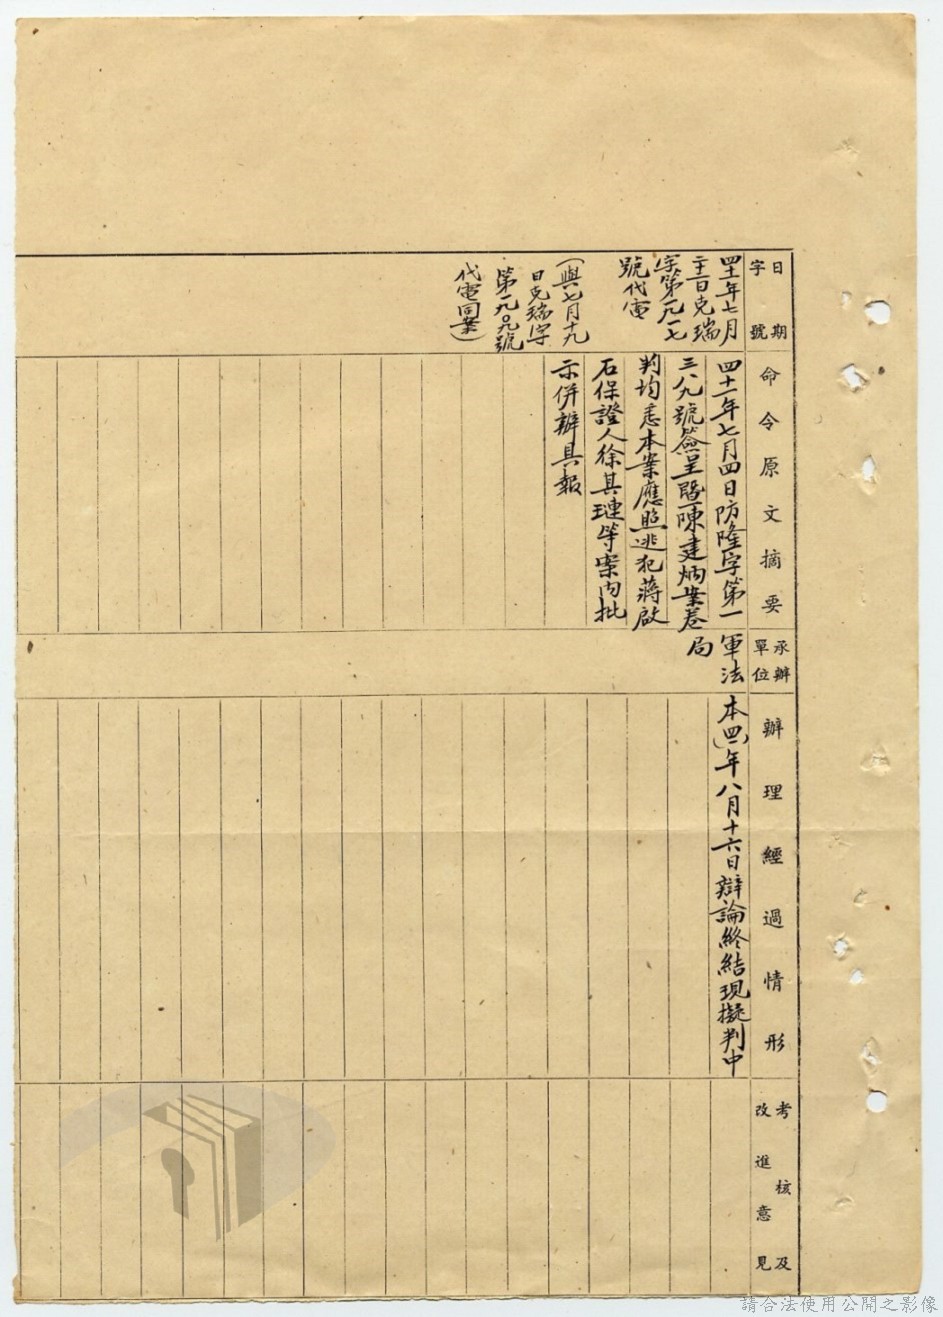 日期
字號
四十一年七月
二十二日克瑞
字第一九一七
號代電
（與七月十九
日克瑞字
第一九〇九號
代電同案）
命令原文摘要
四十一年七月四日防隆字第一
三八九號簽呈暨陳建炳業卷
判均悉本案應照逃犯蔣啟
石保證人徐其璉等案內批
示併辦具報
承辦
單位
軍法
局
辦理經過情形
本（四一）年八月十六日辯論終結現擬判中
考核及
改進意見
請合法使用公開之影像